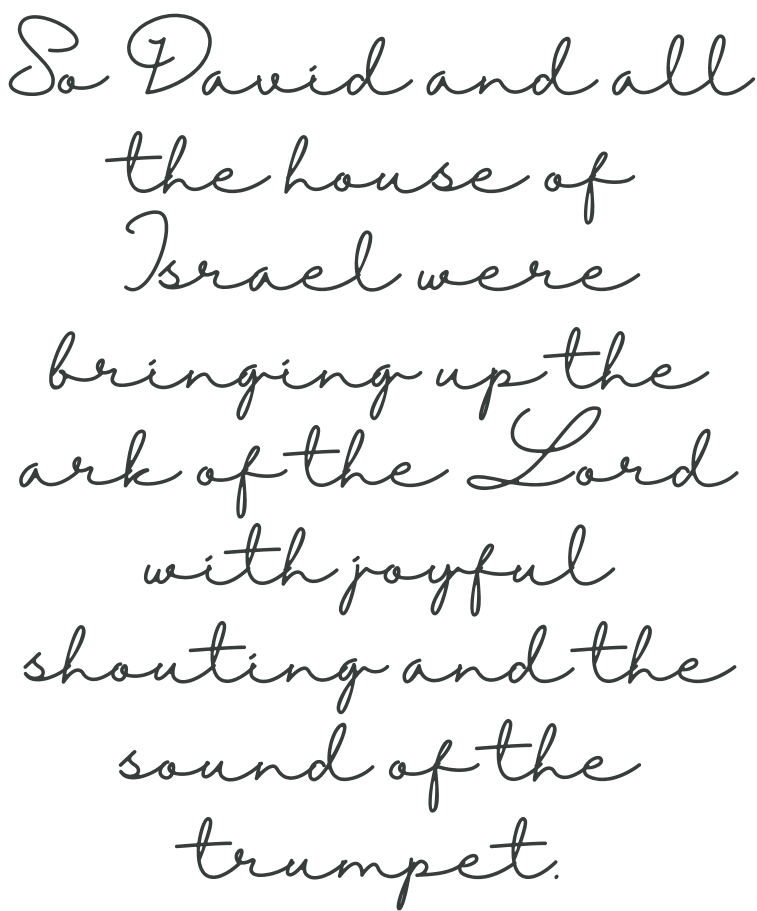 So David and all
the house of
Israel were
bringing up the
ark of the Lord
with joyful
shouting and the
sound of the
trumpet.